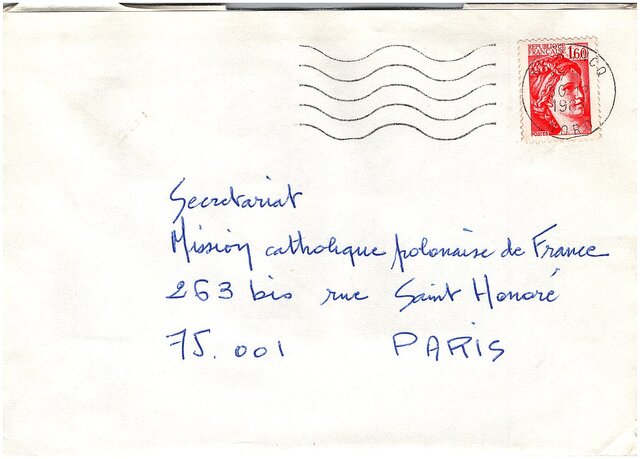 REPUBLIQUE
FRANCAISE 1,60
POSTES
Secretariat
Mission catholique polonaise de France
263 bis rue Saint Honoré
75.001 PARIS